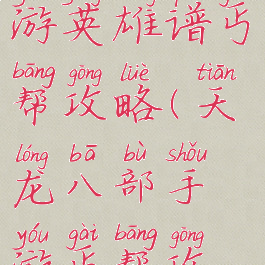 游英雄谱丐
bāng gōng lüè tiān
帮攻略(天
lóng bā bù shǒu
龙八部手
yóu gài bāng gōng
游丐帮攻